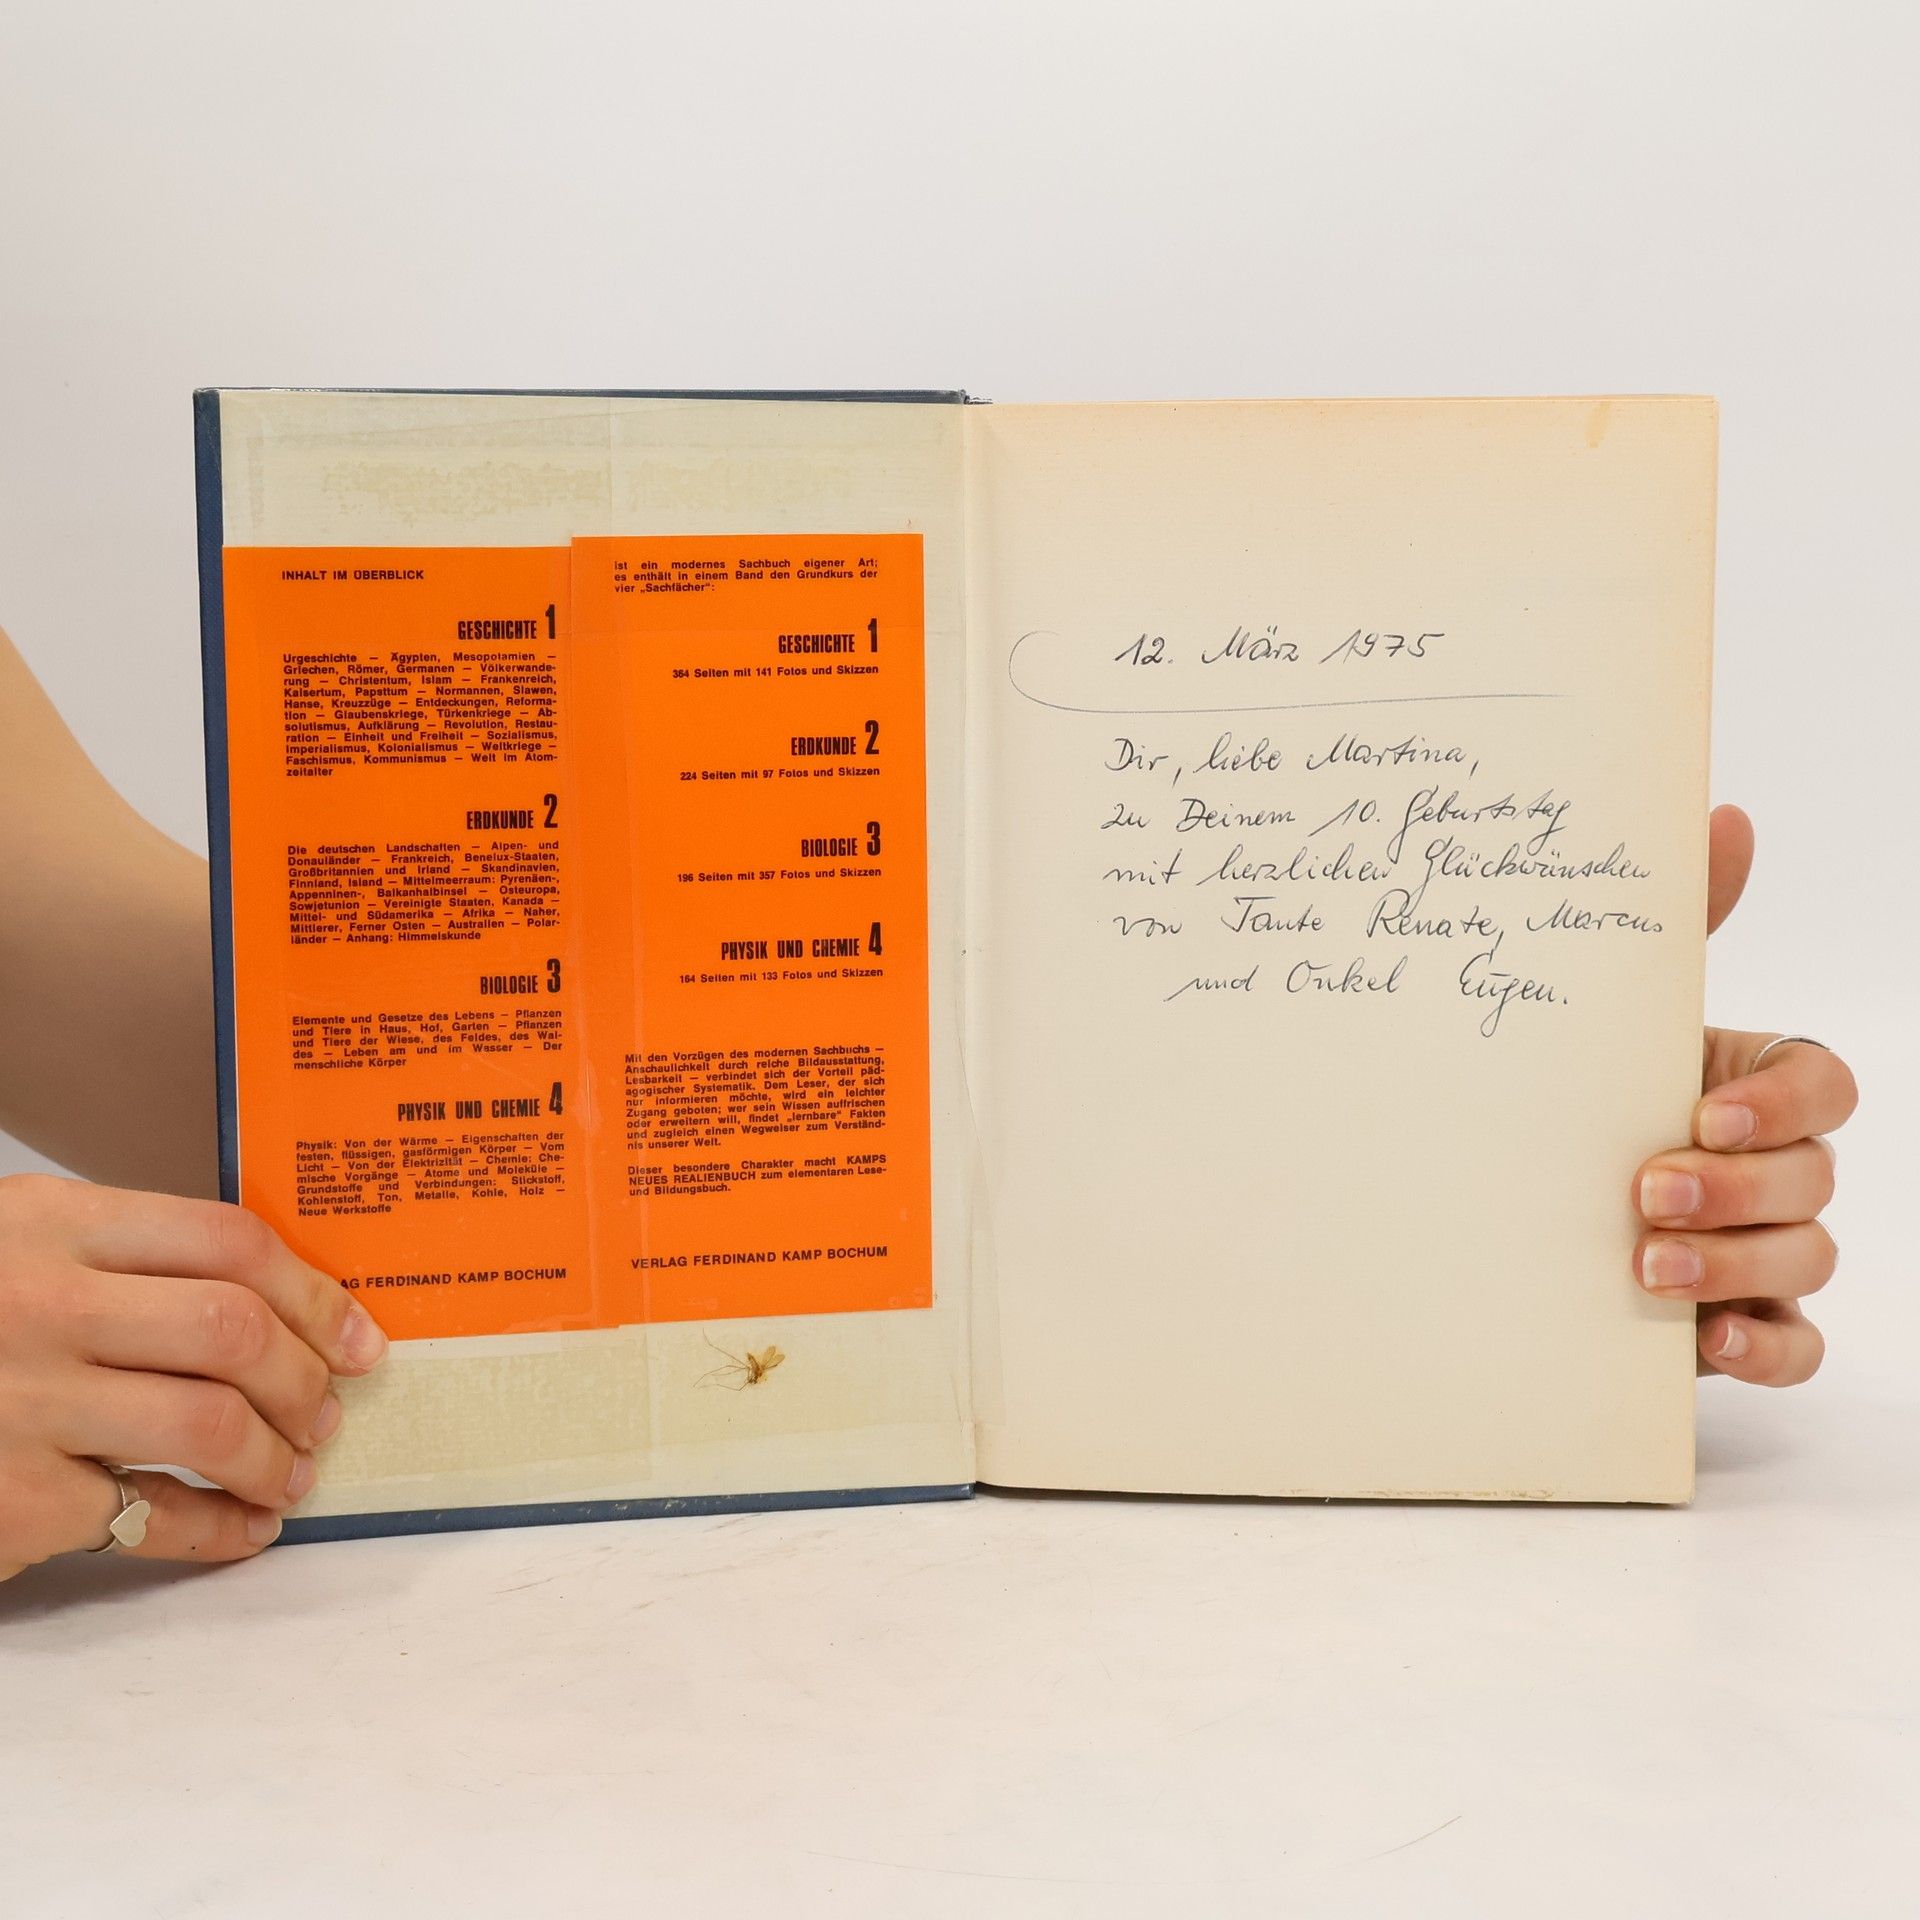 INHALT IM ÜBERBLICK
GESCHICHTE 1
Urgeschichte — Ägypten, Mesopotamien —
Griechen, Römer, Germanen — Völkerwande-
rung — Christentum, Islam — Frankenreich,
Kaisertum, Papsttum — Normannen, Slawen,
Hanse, Kreuzzüge — Entdeckungen, Reforma-
tion — Glaubenskriege, Türkenkriege — Ab-
solutismus, Aufklärung — Revolution, Restau-
ration — Einheit und Freiheit — Sozialismus,
Imperialismus, Kolonialismus — Weltkriege —
Faschismus, Kommunismus — Welt im Atom-
zeitalter
ERDKUNDE 2
Die deutschen Landschaften — Alpen- und
Donauländer — Frankreich, Benelux-Staaten,
Großbritannien und Irland — Skandinavien,
Finnland, Island — Mittelmeerraum: Pyrenäen-,
Appenninen-, Balkanhalbinsel — Osteuropa,
Sowjetunion — Vereinigte Staaten, Kanada —
Mittel- und Südamerika — Afrika — Naher,
Mittlerer, Ferner Osten — Australien — Polar-
länder — Anhang: Himmelskunde
BIOLOGIE 3
Elemente und Gesetze des Lebens — Pflanzen
und Tiere in Haus, Hof, Garten — Pflanzen
und Tiere der Wiese, des Feldes, des Wal-
des — Leben am und im Wasser — Der
menschliche Körper
PHYSIK UND CHEMIE 4
Physik: Von der Wärme — Eigenschaften der
festen, flüssigen, gasförmigen Körper — Vom
Licht — Von der Elektrizität — Chemie: Che-
mische Vorgänge — Atome und Moleküle —
Grundstoffe und Verbindungen: Stickstoff,
Kohlenstoff, Ton, Metalle, Kohle, Holz —
Neue Werkstoffe
AG FERDINAND KAMP BOCHUM
ist ein modernes Sachbuch eigener Art;
es enthält in einem Band den Grundkurs der
vier „Sachfächer":
GESCHICHTE 1
364 Seiten mit 141 Fotos und Skizzen
ERDKUNDE 2
224 Seiten mit 97 Fotos und Skizzen
BIOLOGIE 3
196 Seiten mit 357 Fotos und Skizzen
PHYSIK UND CHEMIE 4
164 Seiten mit 133 Fotos und Skizzen
Mit den Vorzügen des modernen Sachbuchs —
Anschaulichkeit durch reiche Bildausstattung,
Lesbarkeit — verbindet sich der Vorteil päd-
agogischer Systematik. Dem Leser, der sich
nur informieren möchte, wird ein leichter
Zugang geboten; wer sein Wissen auffrischen
oder erweitern will, findet „lernbare" Fakten
und zugleich einen Wegweiser zum Verständ-
nis unserer Welt.
Dieser besondere Charakter macht KAMPS
NEUES REALIENBUCH zum elementaren Lese-
und Bildungsbuch.
VERLAG FERDINAND KAMP BOCHUM
12. März 1975
Dir, liebe Martina,
zu Deinem 10. Geburtstag
mit herzlichen Glückwünschen
von Tante Renate, Marcus
und Onkel Eugen.